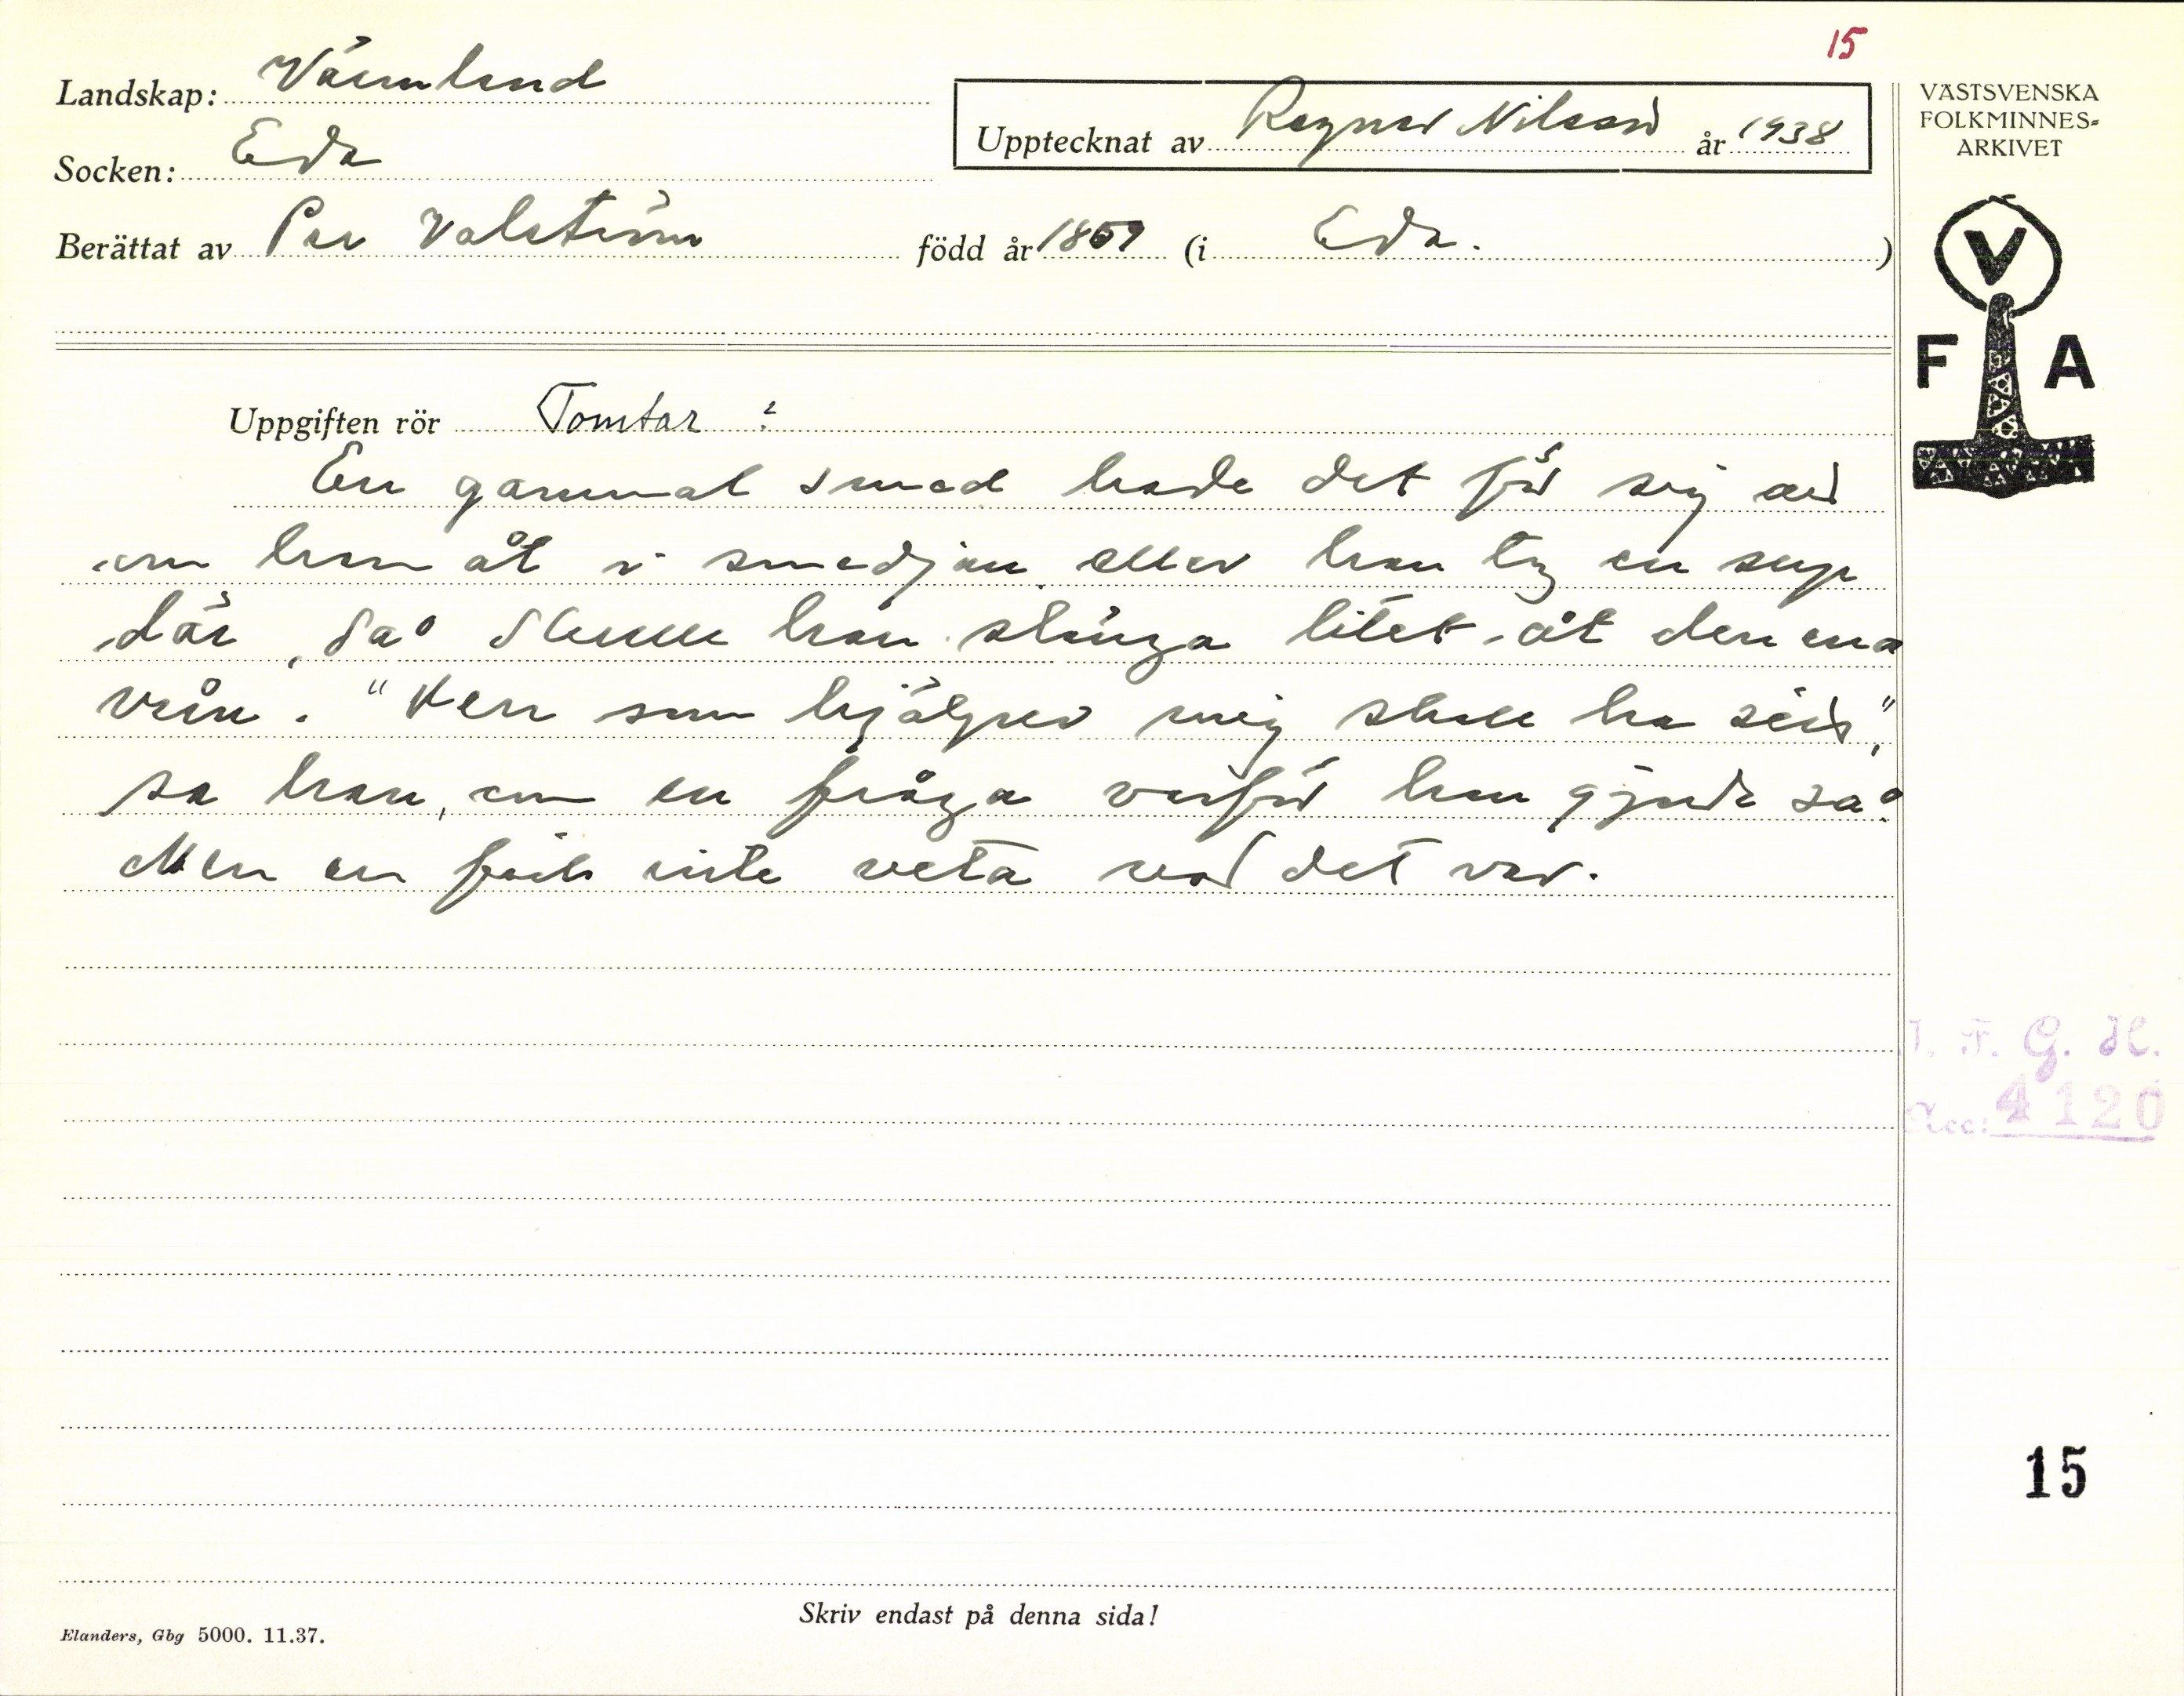 15
Landskap: Värmland
Upptecknat av Ragnar Nilsson år 1938
Socken: Eda
Berättat av Per Valström född år 1859 (i Eda.)
VÄSTSVENSKA
FOLKMINNES-
ARKIVET
V
F A
Uppgiften rör Tomtar ?
En gammal smed hade det för sig att
om han åt i smedjan eller han tog en sup
där, så skulle han slänga litet åt den ena
vrån. "Den som hjälper mig skall ha sitt",
sa han, om en fråga varför han gjorde så.
Men en fick inte veta vad det var.
I. F. G. H.
Acc: 4120
15
Skriv endast på denna sida!
Elanders, Gbg 5000. 11.37.